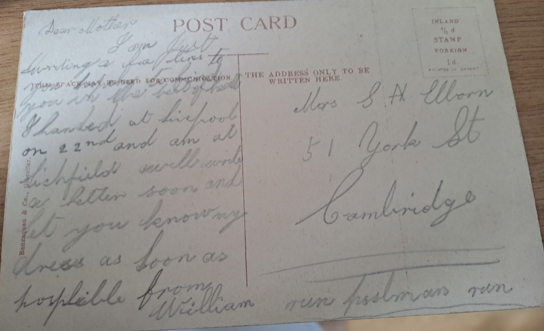 POST CARD
Dear Mother
I am Just
writing a few lines to
THIS SPACE MAY BE USED FOR COMMUNICATION
you in the best of
I landed at Liverpool
on 22nd and am at
Lichfield will write
a letter soon and
let you know my
dress as soon as
hosplible from
William
THE ADDRESS ONLY TO BE
WRITTEN HERE
INLAND
½d
STAMP
FOREIGN
1d.
Mrs S H Elborn
51 York St
Cambridge
run postman run